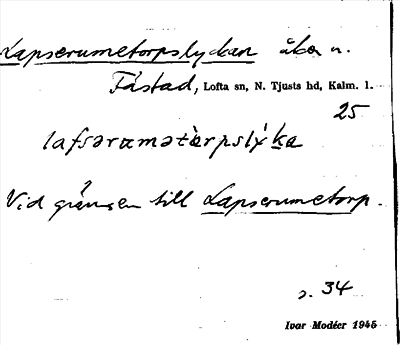 Lapserumetorpslyckan åker n.
Fästad, Lofta sn, N. Tjusts hd, Kalm. l.
25
lafsərɑmətὰrpslýka
Vid gränsen till Lapserumetorp.
s. 34
Ivar Modéer 1945